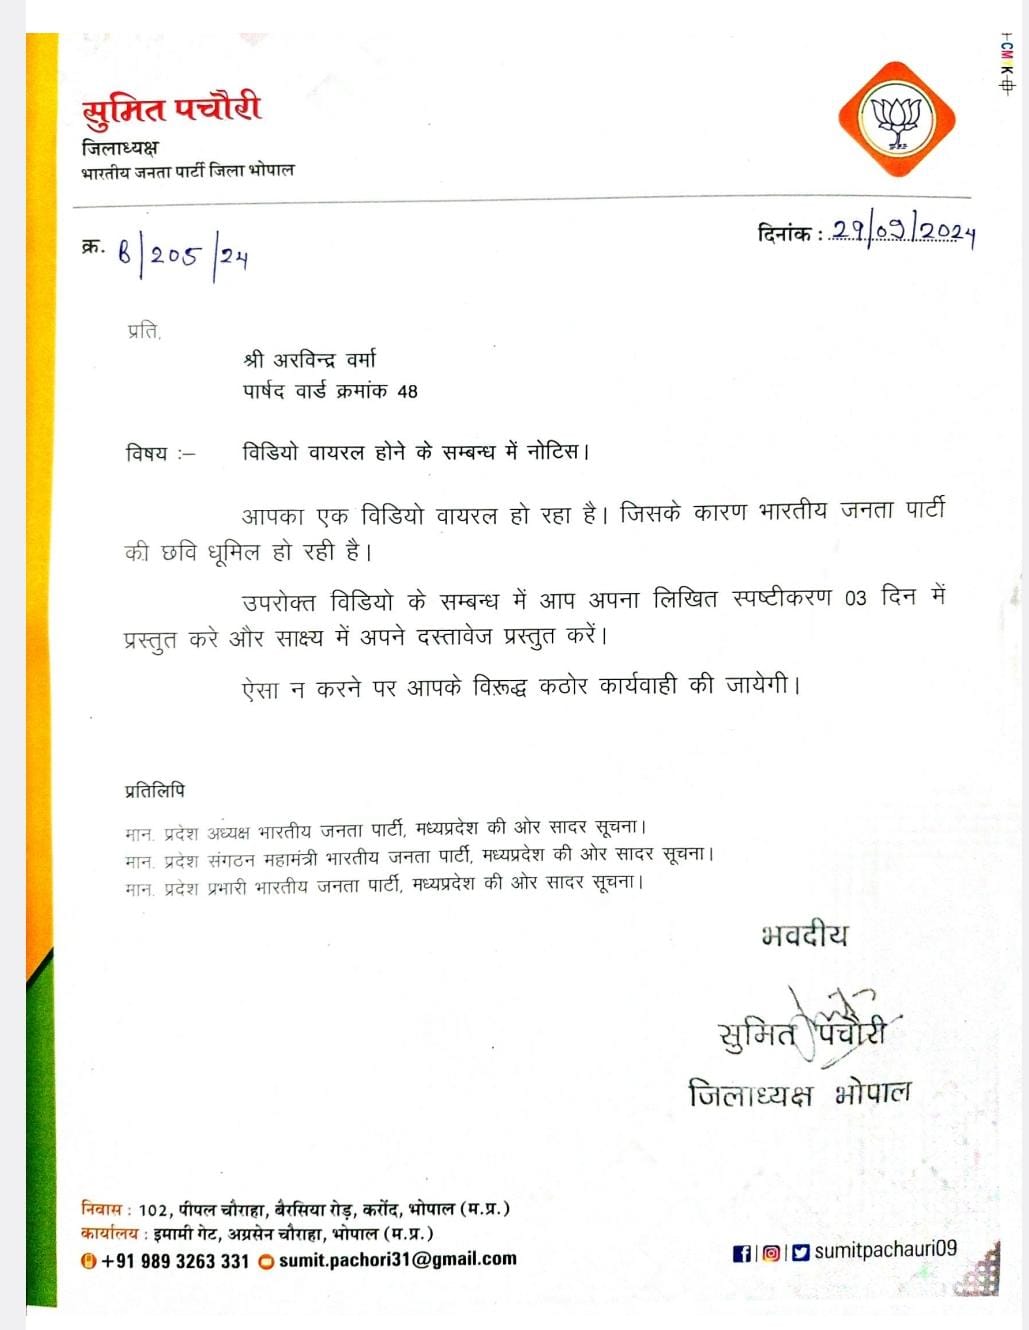 सुमित पचौरी
जिलाध्यक्ष
भारतीय जनता पार्टी जिला भोपाल
क्र. B/205/24
दिनांक : 29/09/2024
प्रति,
श्री अरविन्द्र वर्मा
पार्षद वार्ड क्रमांक 48
विषय :– विडियो वायरल होने के सम्बन्ध में नोटिस।
आपका एक विडियो वायरल हो रहा है। जिसके कारण भारतीय जनता पार्टी
की छवि धूमिल हो रही है।
उपरोक्त विडियो के सम्बन्ध में आप अपना लिखित स्पष्टीकरण 03 दिन में
प्रस्तुत करे और साक्ष्य में अपने दस्तावेज प्रस्तुत करें।
ऐसा न करने पर आपके विरूद्ध कठोर कार्यवाही की जायेगी।
प्रतिलिपि
मान. प्रदेश अध्यक्ष भारतीय जनता पार्टी, मध्यप्रदेश की ओर सादर सूचना।
मान. प्रदेश संगठन महामंत्री भारतीय जनता पार्टी, मध्यप्रदेश की ओर सादर सूचना।
मान. प्रदेश प्रभारी भारतीय जनता पार्टी, मध्यप्रदेश की ओर सादर सूचना।
भवदीय
सुमित पचौरी
जिलाध्यक्ष भोपाल
निवास : 102, पीपल चौराहा, बैरसिया रोड़, करोंद, भोपाल (म.प्र.)
कार्यालय : इमामी गेट, अग्रसेन चौराहा, भोपाल (म.प्र.)
+91 989 3263 331 sumit.pachori31@gmail.com
sumitpachauri09
CMYK